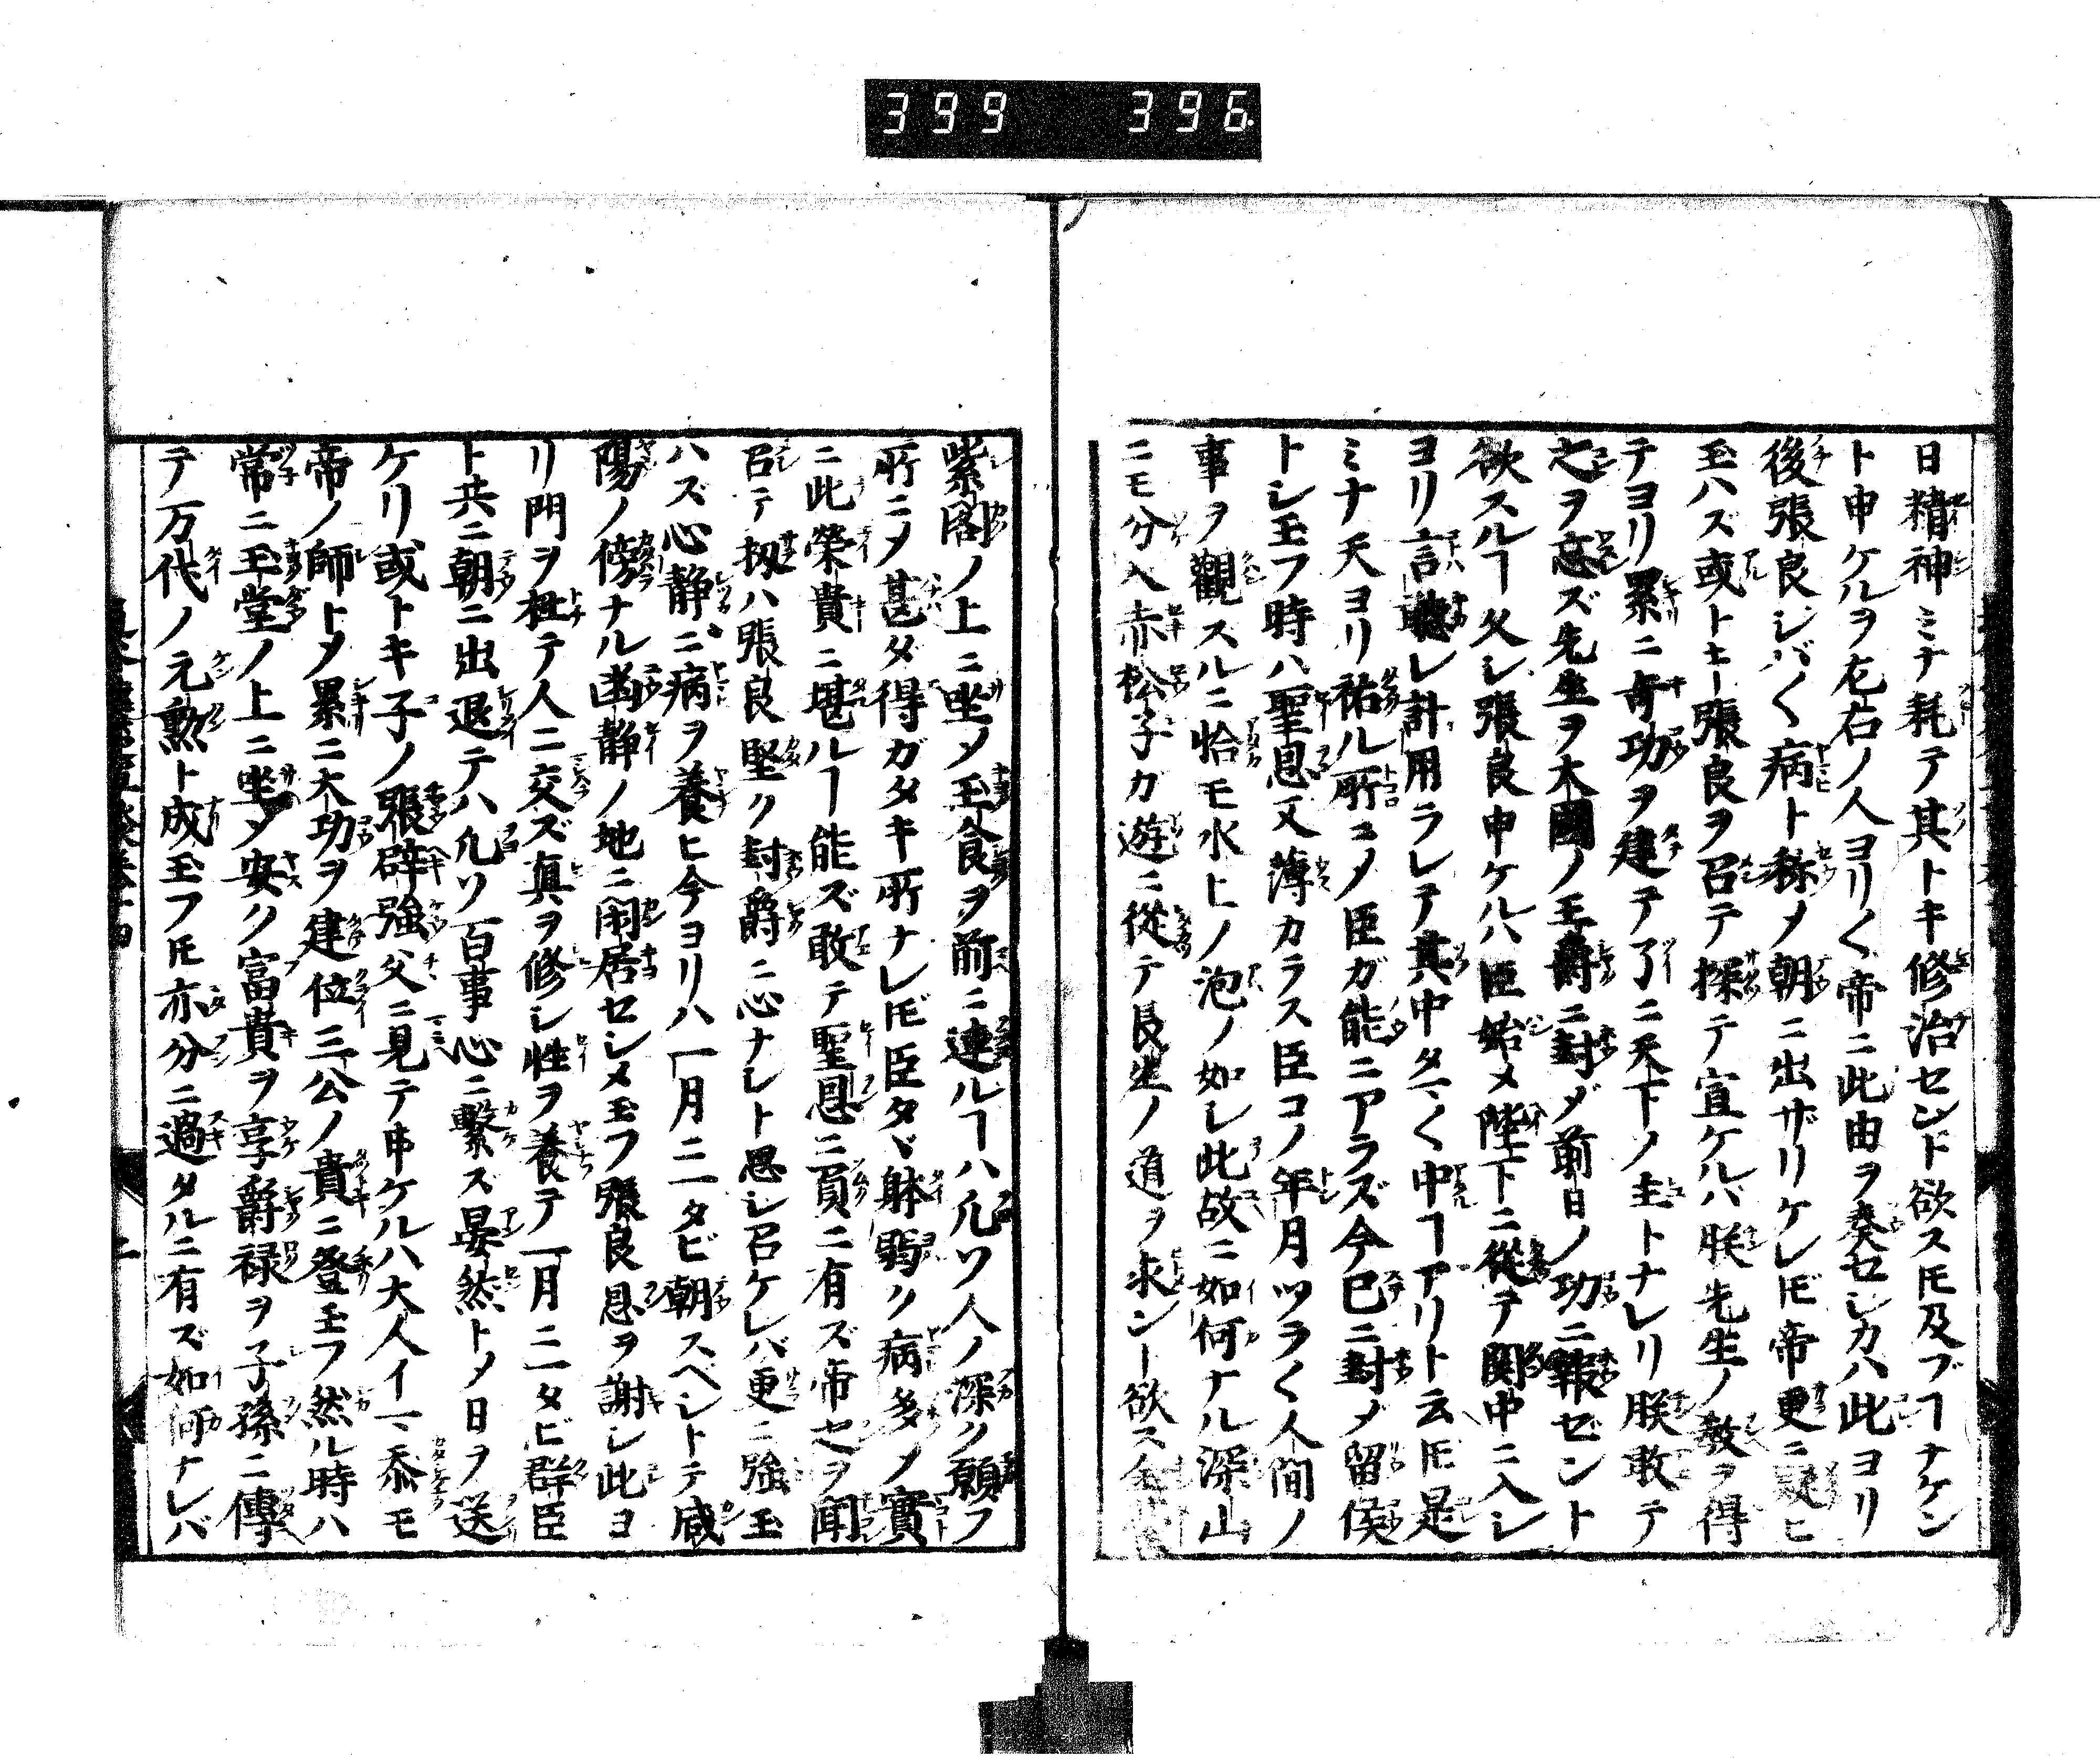 399 396.
日精神ミナ耗テ其トキ修治セント欲スル𪜈及ブヿナケン
ト申ケルヲ左右ノ人ヨリ〱帝ニ此由ヲ奏セシカハ此ヨリ
後張良シバ〱病ト稱〆朝ニ出ザリケレ𪜈帝更ニ疑ヒ
玉ハズ或トキ張良ヲ召テ探テ宣ケルハ朕先生ノ教ヲ得
テヨリ累ニ奇功ヲ建テ了ニ天下ノ主トナレリ朕敢テ
之ヲ忘ズ先生ヲ大國ノ王爵ニ封ジ前日ノ功ニ報ゼント
欲スルヿ久シ張良申ケルハ臣始メ陛下ニ從テ関中ニ入シ
ヨリ言聴レ計用ラレテ其中タマ〱中ルヿアリト云𪜈是
ミナ天ヨリ祐ル所ニ〆臣ガ能ニアラズ今已ニ封〆留侯
トシ玉フ時ハ聖恩又薄カラス臣コノ年月ツラ〱人間ノ
事ヲ觀スルニ恰モ水上ノ泡ノ如シ此故ニ如何ナル深山
ニモ分入赤松子ガ遊ニ從テ長生ノ道ヲ求ンヿ欲ス
紫閣ノ上ニ坐〆玉食ヲ前ニ連ルヿハ凡ソ人ノ深ク願フ
所ニ〆甚タ得ガタキ所ナレ𪜈臣タヾ躰弱ク病多〆實
ニ此榮貴ニ堪ルヿ能ズ敢テ聖恩ニ負ニ有ズ帝之ヲ聞
召テ扨ハ張良堅ク封爵ニ心ナシト思シ召ケレバ更ニ強玉
ハズ心静ニ病ヲ養ヒ今ヨリハ一月ニ一タビ朝スベシトテ咸
陽ノ傍ナル幽静ノ地ニ閑居セシメ玉フ張良恩ヲ謝シ此ヨ
リ門ヲ杜テ人ニ交ズ真ヲ修シ性ヲ養テ一月ニ一タビ群臣
ト共ニ朝ニ出退テハ凡ソ百事心ニ繫ス晏然ト〆日ヲ送
ケリ或トキ子ノ張辟強父ニ見テ申ケルハ大人イマ忝モ
帝ノ師ト〆累ニ大功ヲ建位三公ノ貴ニ登玉フ然ル時ハ
常ニ玉堂ノ上ニ坐〆安ク富貴ヲ享爵禄ヲ子孫ニ傳
テ万代ノ元勲ト成玉フ𪜈亦分ニ過タルニ有ズ如何ナレバ